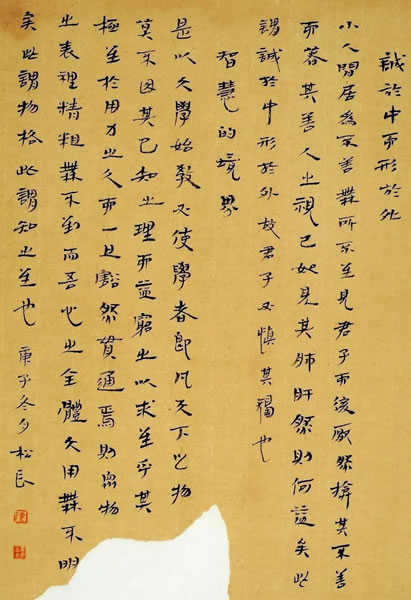 誠於中而形於外
小人閒居為不善無所不至見君子而後厭然揜其不善
而著其善人之視己如見其肺肝然則何益矣此
謂誠於中形於外故君子必慎其獨也
智慧的境界
是以大學始教必使學者即凡天下之物
莫不因其已知之理而益窮之以求至乎其
極至於用力之久而一旦豁然貫通焉則眾物
之表裡精粗無不到而吾心之全體大用無不明
矣此謂物格此謂知之至也 庚子冬夕松長